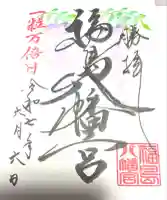 福島八幡宮
一粒万倍日
令和七年
六月六日
福島
八幡宮